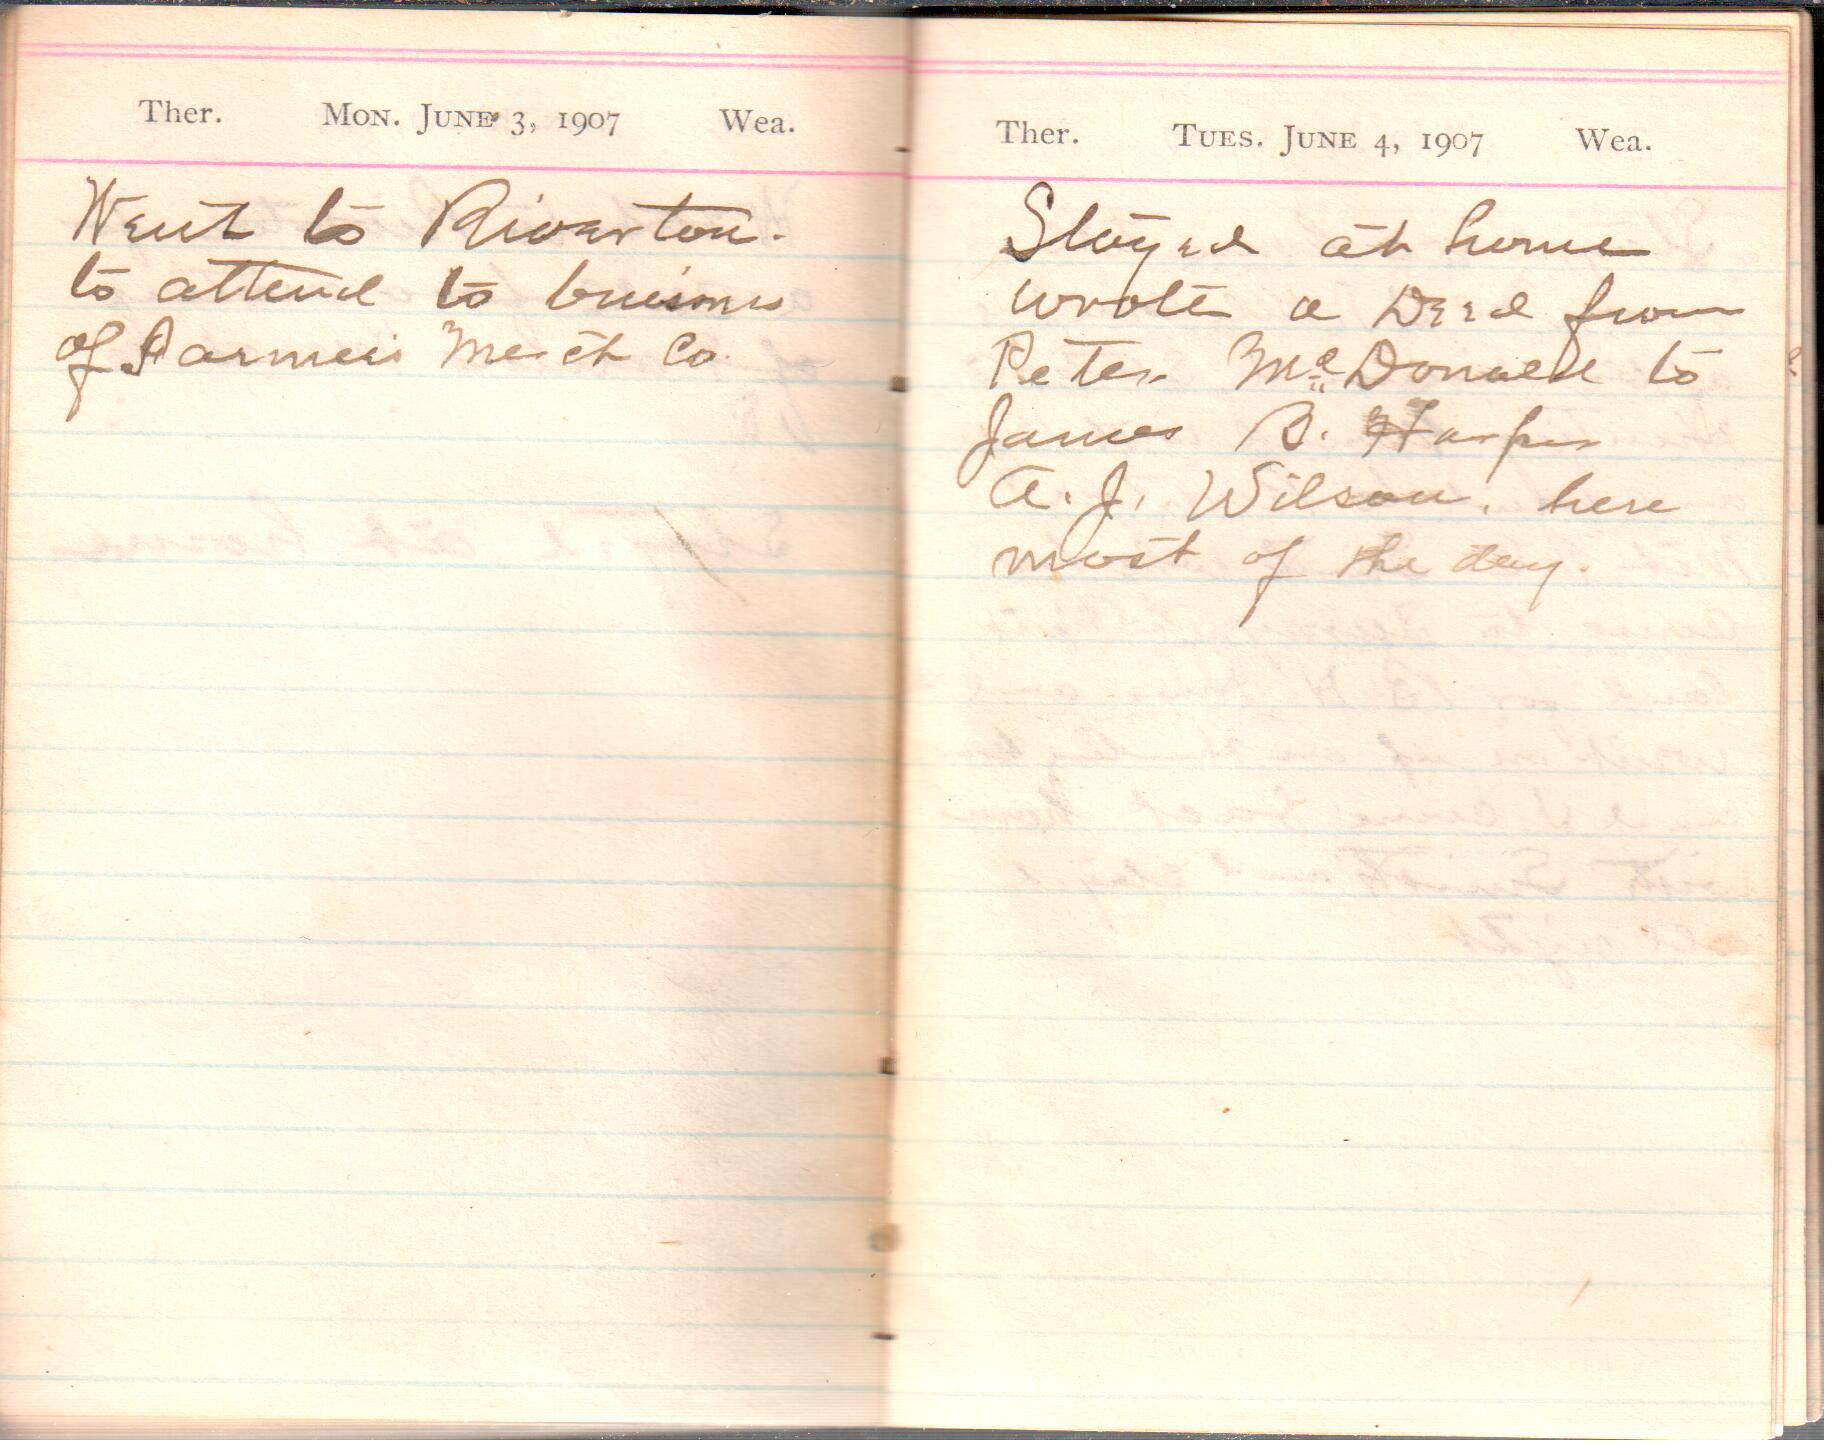 Ther. Mon. June 3, 1907 Wea.
Went to Riverton.
to attend to buisness
of Farmers Merch Co.
Ther. Tues. June 4, 1907 Wea.
Stayed at home
wrote a Deed from
Peter McDonald to
James B. Harper
A. J. Wilson. here
most of the day.